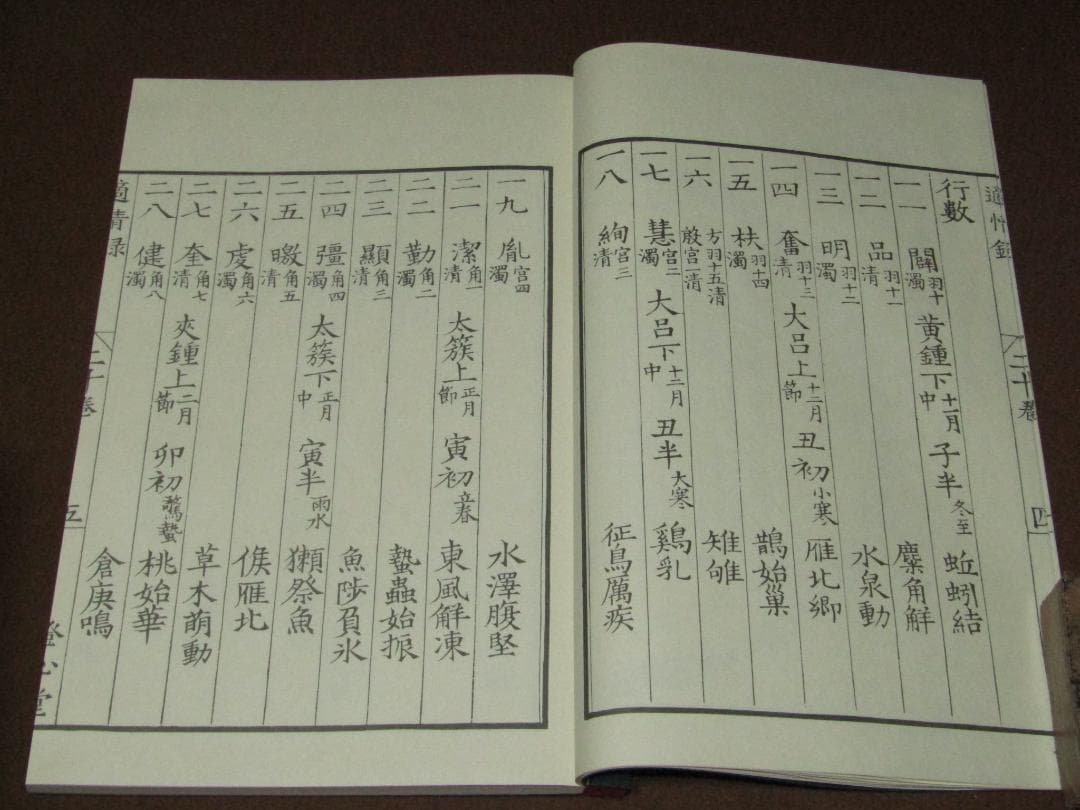 適情錄 二十卷 四
行數
一一 闢濁 羽十 黃鍾下 十一月中 子半 冬至 蚯蚓結
一二 品清 羽十一 麋角解
一三 明濁 羽十二 水泉動
一四 奮清 羽十三 大呂上 十二月節 丑初 小寒 雁北鄉
一五 扶濁 羽十四 鵲始巢
一六 方羽十五清 殷宮一清 雉雊
一七 慧濁 宮二 大呂下 十二月中 丑半 大寒 鷄乳
一八 絢清 宮三 征鳥厲疾
一九 胤濁 宮四 水澤腹堅
二一 潔清 角一 太簇上 正月節 寅初 立春 東風解凍
二二 勤濁 角二 蟄蟲始振
二三 顯清 角三 魚陟負氷
二四 彊濁 角四 太簇下 正月中 寅半 雨水 獺祭魚
二五 曒清 角五 候雁北
二六 虔濁 角六 草木萌動
二七 奎清 角七 夾鍾上 二月節 卯初 驚蟄 桃始華
二八 健濁 角八 倉庚鳴
適情錄 二十卷 五